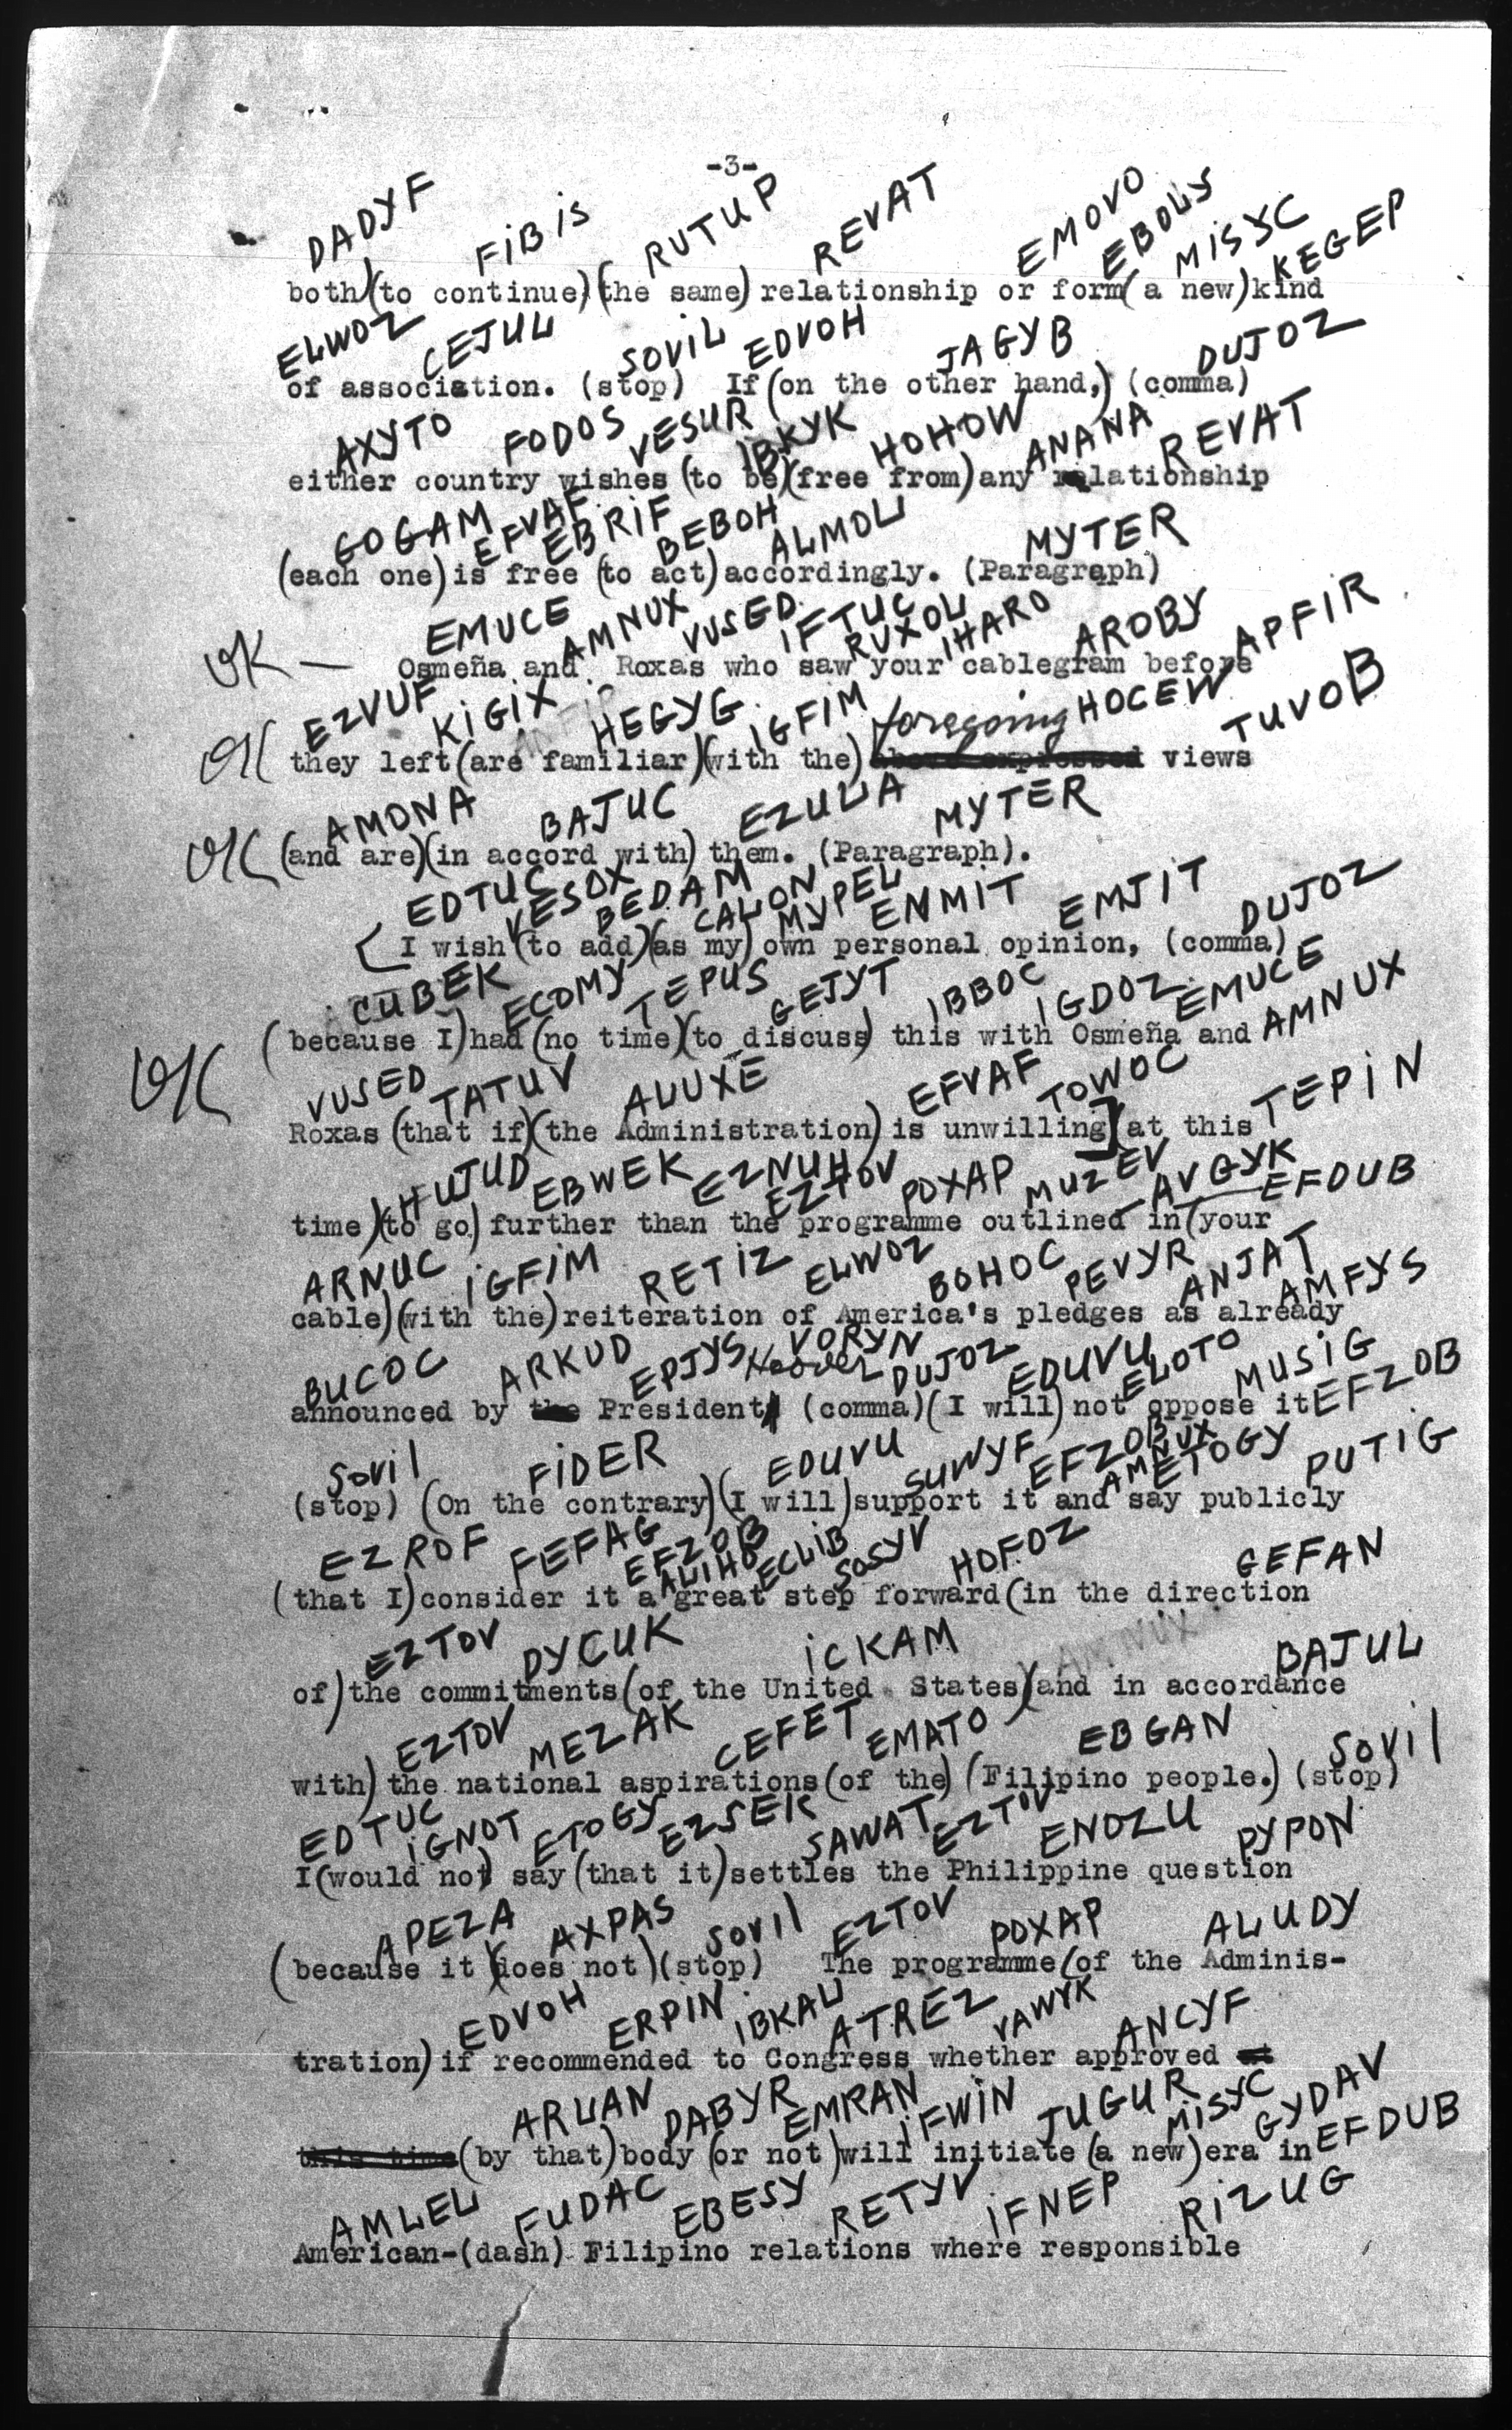 -3-
DADYF FIBIS RUTUP REVAT EMOVO EBOLY MISYC KEGEP
both)(to continue)(the same) relationship or form( a new)kind
ELWOZ CEJUL SOVIL EDVOH JAGYB DUJOZ
of association. (stop) If (on the other hand,) (comma)
AXYTO FODOS VESUR IBKYK HOHOW ANANA REVAT
either country wishes (to be)(free from)any relationship
GOGAM EFVAF EBRIF BEBOH ALMOL MYTER
(each one)is free (to act)accordingly. (Paragraph)
EMUCE AMNUX VUSED IFTUC RUXOL IHARO AROBY APFIR
OK — Osmeña and Roxas who saw your cablegram before
EZVUF KIGIX HEGYG IGFIM foregoing HOCEW TUVOB
OK they left(are familiar)(with the) above expressed views
AMONA BAJUC EZULA MYTER
OK (and are)(in accord with) them. (Paragraph).
EDTUC VESOX BEDAM CALON MYPEL ENMIT EMJIT DUJOZ
I wish (to add)(as my) own personal opinion, (comma)
CUBEK ECOMY TEPUS GEJYT IBBOC IGDOZ EMUCE AMNUX
(because I)had (no time)(to discuss) this with Osmeña and
OK
VUSED TATUV ALUXE EFVAF TOWOC TEPIN
Roxas (that if)(the Administration) is unwilling](at this
HUJUD EBWEK EZNUH EZTOV POXAP MUZEV AVGYK EFDUB
time)(to go) further than the programme outlined in(your
ARNUC IGFIM RETIZ ELWOZ BOHOC PEVYR ANJAT AMFYS
cable)(with the)reiteration of America's pledges as already
BUCOC ARKUD EPJYS Hoover VORYN DUJOZ EDUVU ELOTO MUSIG EFZOB
announced by the President (comma)(I will) not oppose it
SOVIL FIDER EDUVU SUWYF EFZOB AMNUX ETOGY PUTIG
(stop) (On the contrary)(I will)support it and say publicly
EZROF FEFAG EFZOB ALIHO ECLIB SOSYV HOFOZ GEFAN
(that I)consider it a great step forward(in the direction
EZTOV DYCUK ICKAM AMNUX BAJUL
of)the commitments(of the United States)(and in accordance
EZTOV MEZAK CEFET EMATO EBGAN SOVIL
with) the national aspirations(of the) (Filipino people.) (stop)
EDTUC IGNOT ETOGY EZSEK SAWAT EZTOV ENOZU PYPON
I(would not) say (that it)settles the Philippine question
APEZA AXPAS SOVIL EZTOV POXAP ALUDY
(because it)(does not)(stop) The programme(of the Adminis-
EDVOH ERPIN IBKAL ATREZ VAWYK ANCYF
tration)if recommended to Congress whether approved at
ARLAN DABYR EMRAN IFWIN JUGUR MISYC GYDAV EFDUB
this time(by that)body (or not)will initiate (a new)era in
AMLEL FUDAC EBESY RETYV IFNEP RIZUG
American-(dash) Filipino relations where responsible